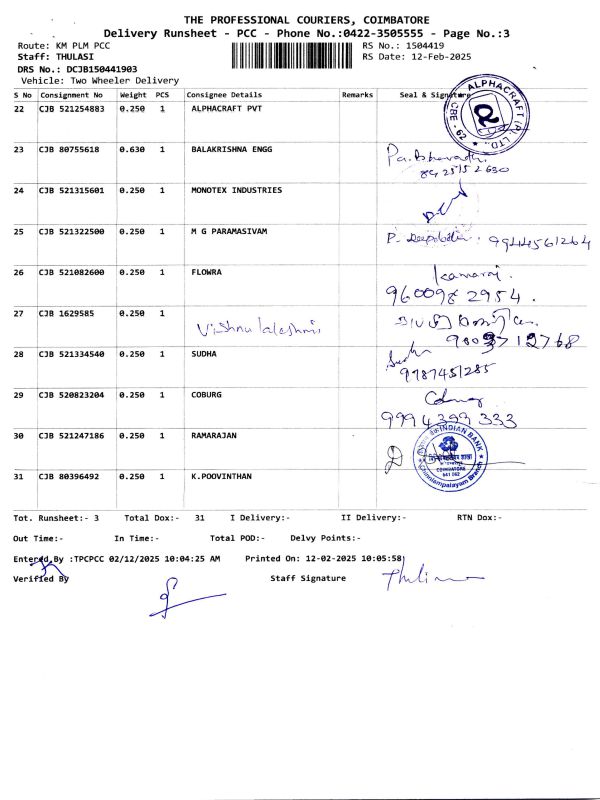 THE PROFESSIONAL COURIERS, COIMBATORE
Delivery Runsheet - PCC - Phone No.:0422-3505555 - Page No.:3
Route: KM PLM PCC RS No.: 1504419
Staff: THULASI RS Date: 12-Feb-2025
DRS No.: DCJB150441903
Vehicle: Two Wheeler Delivery
S No Consignment No Weight PCS Consignee Details Remarks Seal & Signature
22 CJB 521254883 0.250 1 ALPHACRAFT PVT
ALPHACRAFT (P) LTD., CBE - 62
23 CJB 80755618 0.630 1 BALAKRISHNA ENGG
24 CJB 521315601 0.250 1 MONOTEX INDUSTRIES
25 CJB 521322500 0.250 1 M G PARAMASIVAM
9944561264
26 CJB 521082600 0.250 1 FLOWRA Kamaraj.
9600982954.
27 CJB 1629585 0.250 1 Vishnu lakshmi
28 CJB 521334540 0.250 1 SUDHA
9787451285
29 CJB 520823204 0.250 1 COBURG
9994399333
30 CJB 521247186 0.250 1 RAMARAJAN
INDIAN BANK
COIMBATORE
641 062
Chinniampalayam Branch
31 CJB 80396492 0.250 1 K.POOVINTHAN
Tot. Runsheet:- 3 Total Dox:- 31 I Delivery:- II Delivery:- RTN Dox:-
Out Time:- In Time:- Total POD:- Delvy Points:-
Entered By :TPCPCC 02/12/2025 10:04:25 AM Printed On: 12-02-2025 10:05:58
Verified By Staff Signature